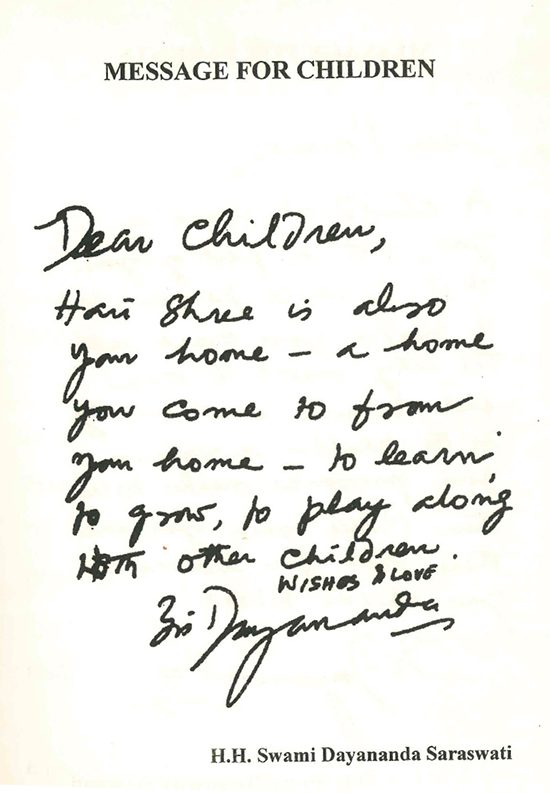 MESSAGE FOR CHILDREN
Dear Children,
Hari Shree is also
your home – a home
you come to from
your home – to learn,
to grow, to play along
with other children.
WISHES & LOVE
Dayananda
H.H. Swami Dayananda Saraswati